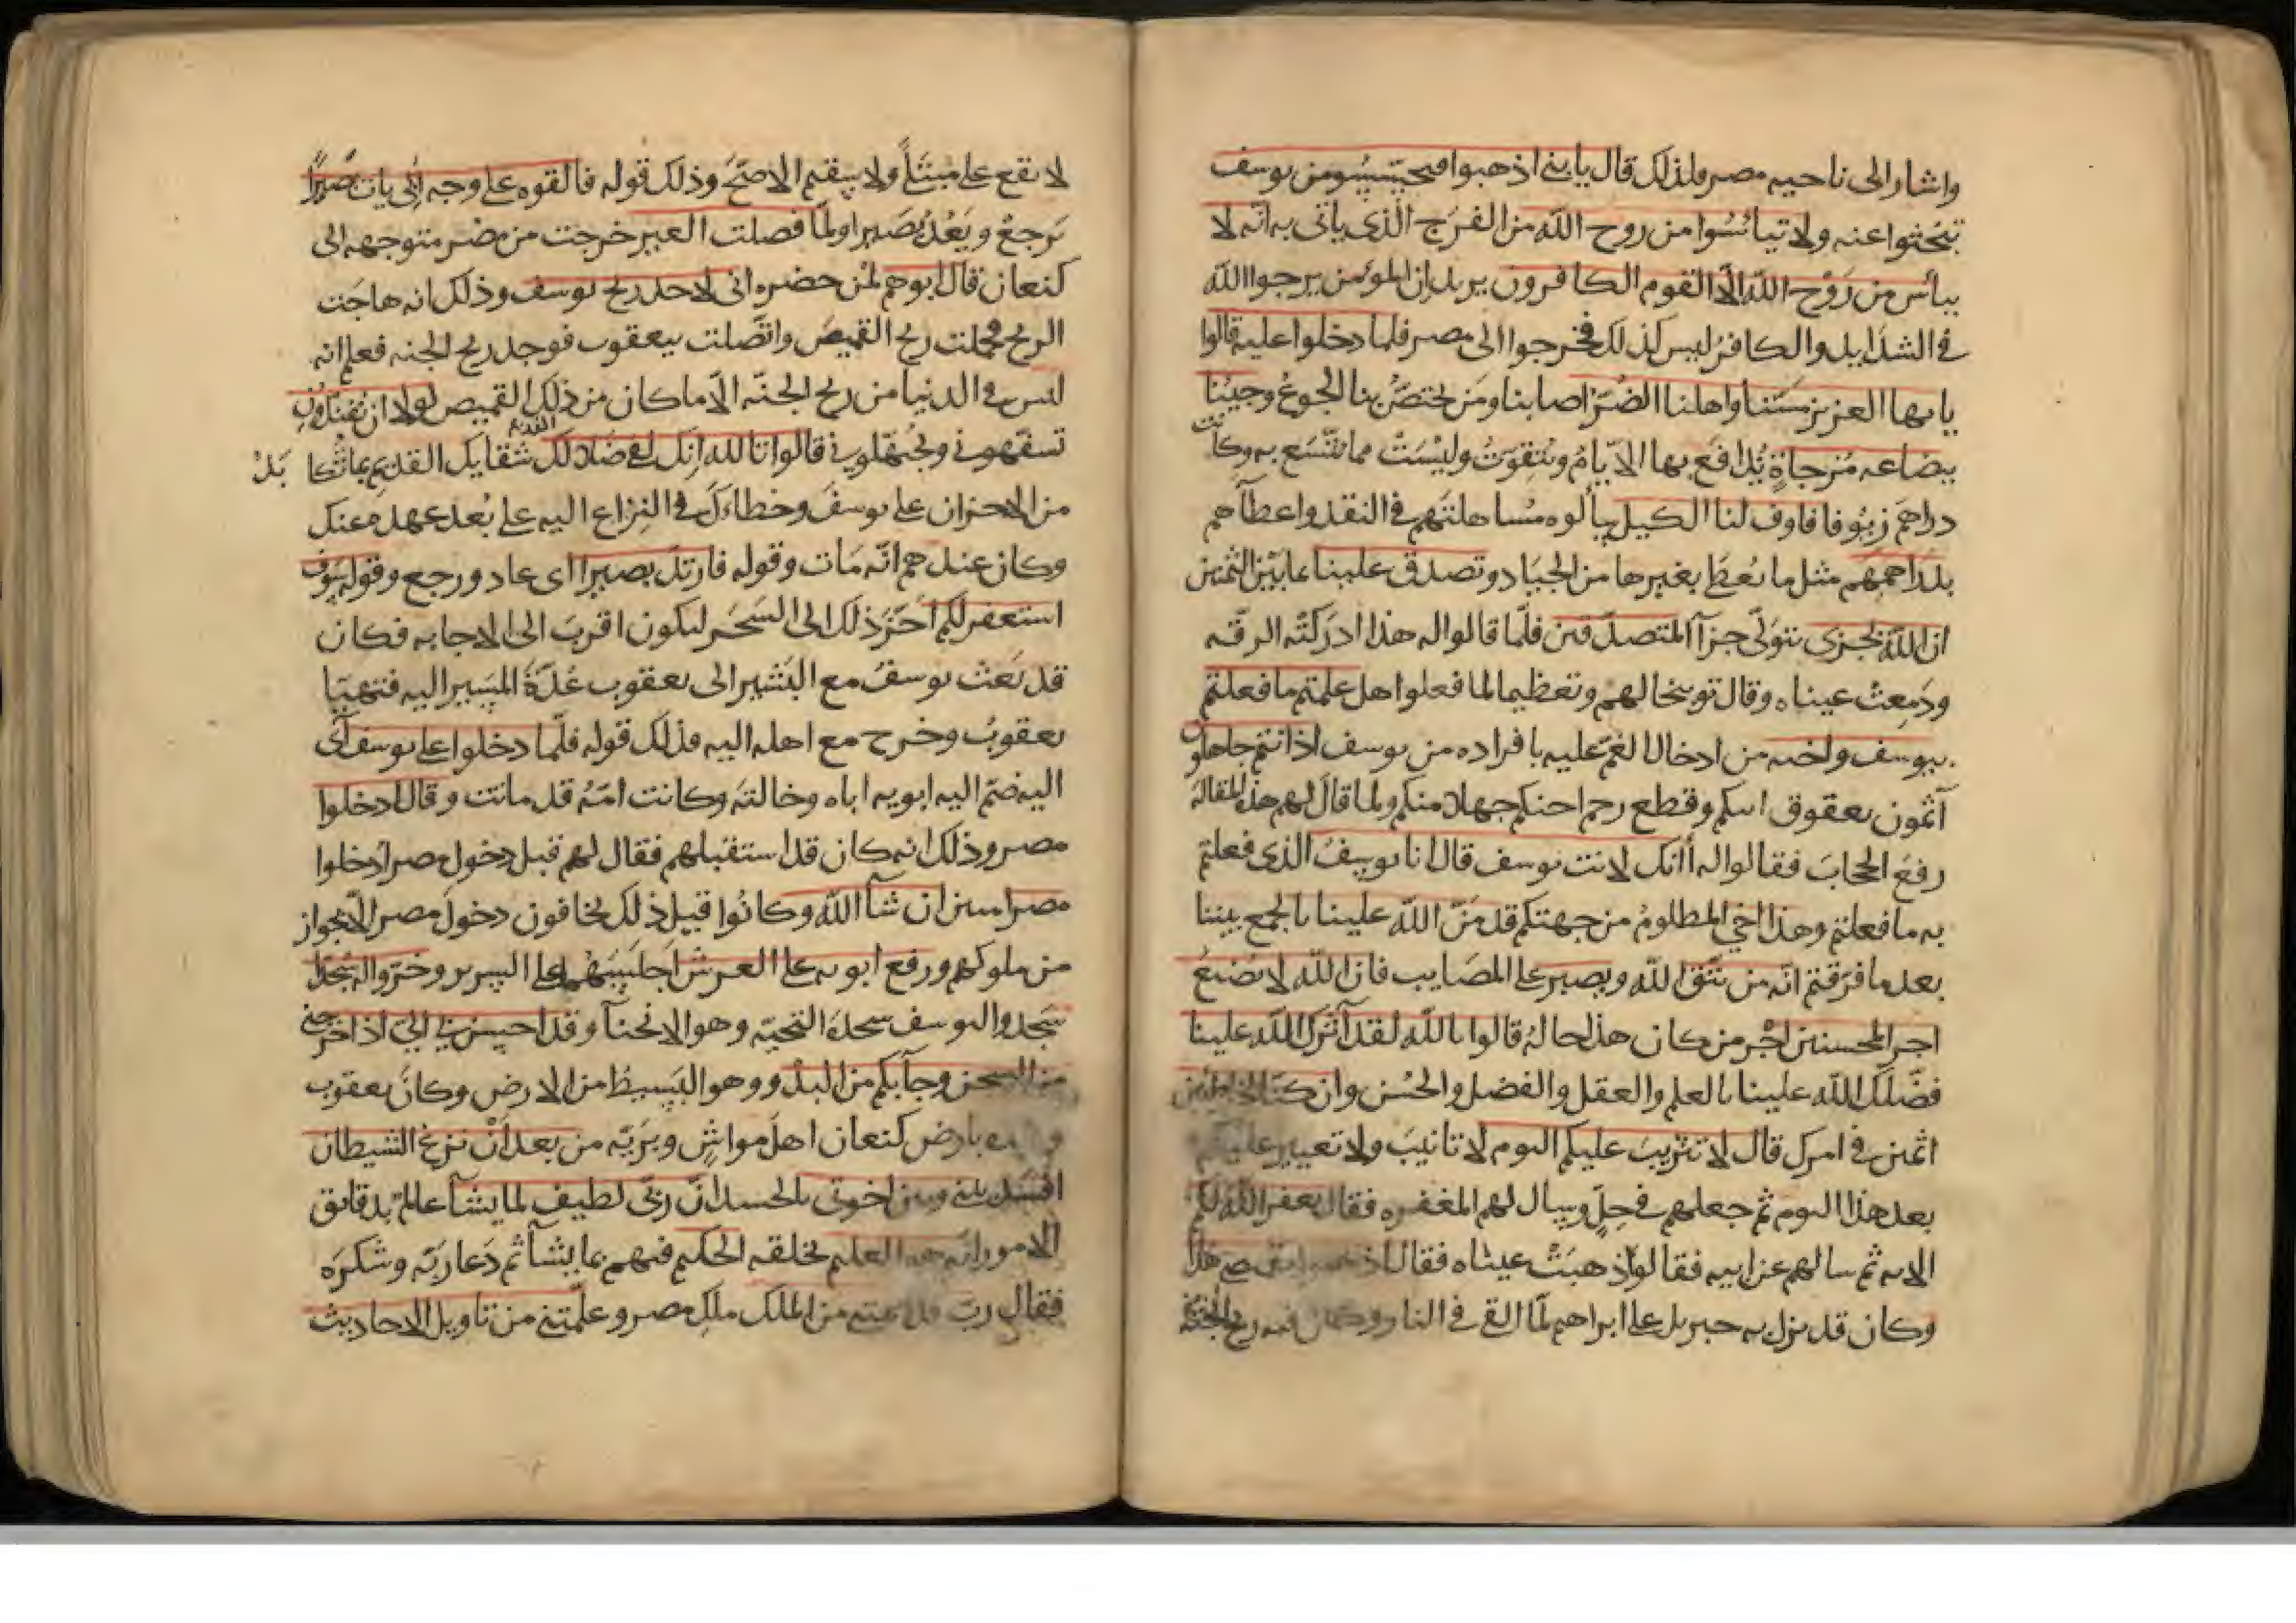 واشار الى ناحيه مصر ولذلك قال يا بني اذهبوا فتحسسوا من يوسف
تبحثوا عنه ولا تيأسوا من روح الله من الفرج الذي ياتي به انه لا
ييأس من رَوْح الله الا القوم الكافرون يريد ان المؤمن يرجوا الله
في الشدايد والكافر ليس كذلك فخرجوا الى مصر فلما دخلوا عليه قالوا
يا ايها العزيز مسّنا واهلنا الضُّرّ اصابنا ومن يختصّ بنا الجوعُ وجينا
ببضاعه مُزجاةٍ يُدافَع بها الايّامُ ويُتقوّتُ وليْسَتْ مما يتّسع به وكانت
دراهمَ زيُوفا فاوف لنا الكيل سألوه مُساهلتهم في النقد واعطآهم
بدَراهمهم مثل ما يُعطَا بغيرها من الجيَاد وتصدق علينا بما بَيْن الثمنين
ان الله يجزى يتولّى جزآ المتصدّقين فلمّا قالوا له هذا ادركتْه الرقّه
ودَمِعتْ عيناه وقال توبيخا لهم وتعظيما لما فعلوا هل علمتم ما فعلتم
بيوسف واخيه من ادخال الغمّ عليه بافراده من يوسف اذ انتم جاهلون
آثمون بعقوق ابيكم وقطع رحم اخيكم جهلا منكم ولما قال لهم هذه المقالة
رفعَ الحجابَ فقالوا له أانك لانت يوسف قال انا يوسفُ الذى فعلتم
به ما فعلتم وهذا اخي المظلومُ من جهتكم قد مَنّ الله علينا بالجمع بيننا
بعد ما فرقتم انّه من يتّق الله ويصبر على المصَايب فان الله لا يُضيعُ
اجر المحسنين اجْر من كان هذا حالهُ قالوا تالله لقد آثرك الله علينا
فضّلك الله علينا بالعلم والعقل والفضل والحُسْن وان كنّا لخاطئين
اثمين في امرك قال لا تثريبَ عليكم اليوم لا تانيبَ ولا تعيير عليكم
بعد هذا اليوم ثم جعلهم في حِلٍّ وسال لهم المغفره فقال يغفر الله لكم
الايه ثم سالهم عن ابيه فقالوا ذهبَتْ عيناه فقال اذهبوا بقميصي هذا
وكان قد نزل به جبريل على ابراهيم لمّا القي في النار وكان فيه ريح الجنّة
لا يقع على مُبتلًى ولا سقيم الا صَحَّ وذلك قوله فالقوه على وجه ابي يات بَصيرًا
يَرجعْ ويَعُدْ بصَيرا ولمّا فصلت العير خرجت من مصر متوجهه الى
كنعان قال ابوهم لمن حضره انى لاجد ريح يوسف وذلك انه هاجَت
الريح فحملت ريح القميصَ واتّصلت بيعقوب فوجد ريح الجنه فعلم انه
ليس في الدنيا من ريح الجنّه الّا ما كان من ذلك القميص لولا ان تفندون
تسفّهوني وتجُهّلوني قالوا تالله انّك لفي ضلالك القديم شقايك القديم بما تُكابدُ
من الاحزان على يوسفَ وخطاءكَ في النِزاع اليه على بُعد عهده عنك
وكان عندهم انّه مَات وقوله فارتدّ بصيرا اى عاد ورجع وقوله سوف
استغفر لكم اخّرَ ذلك الى السَحَر ليكون اقربَ الى الاجابه فكان
قد بَعث يوسفُ مع البَشير الى يعقوب عُدّةَ المَسير اليه فتهيّا
يعقوبُ وخرج مع اهله اليه فذلك قوله فلّما دخلوا على يوسف آوى
اليه ضمّ اليه ابويه اباه وخالتهَ وكانت امّه قد ماتت وقال ادخلوا
مصر وذلك انه كان قد استقبلهم فقال لهم قبل دخول مصر ادخلوا
مصر امنين ان شآ الله وكانُوا قبل ذلك يخافون دخولَ مصر الّا بجواز
من ملوكهم ورفع ابويه على العرش اجلسَهُما على السرير وخرّوا له سُجّدا
سَجدوا ليوسف سجدةَ التحيّه وهو الانحنآ وقد احسن بي الىّ اذ اخرجني
من السجن وجآ بكم من البدْو وهو البَسيط من الارض وكان يعقوب
بارض كنعان اهلَ مواشٍ وبَرّيّه من بعد أنْ نزغ الشيطان
افسَد بيني وبين اخوتى بالحسد انّ ربّى لطيف لما يشآ عالم بدقايق
الامور انّه هو العليم بخلقه الحكيم فيهم بما يشآ ثم دَعا ربّه وشكرَه
فقال ربّ قد من الملك ملكِ مصر وعلّمتني من تاويل الاحاديث